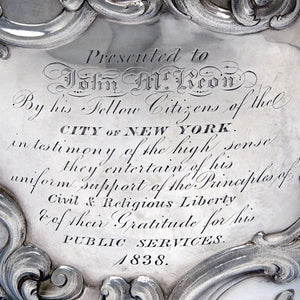 Presented to
John McKeon
By his Fellow Citizens of the
CITY OF NEW YORK.
in testimony of the high sense
they entertain of his
uniform support of the Principles of
Civil & Religious Liberty
& of their Gratitude for his
PUBLIC SERVICES.
1838.